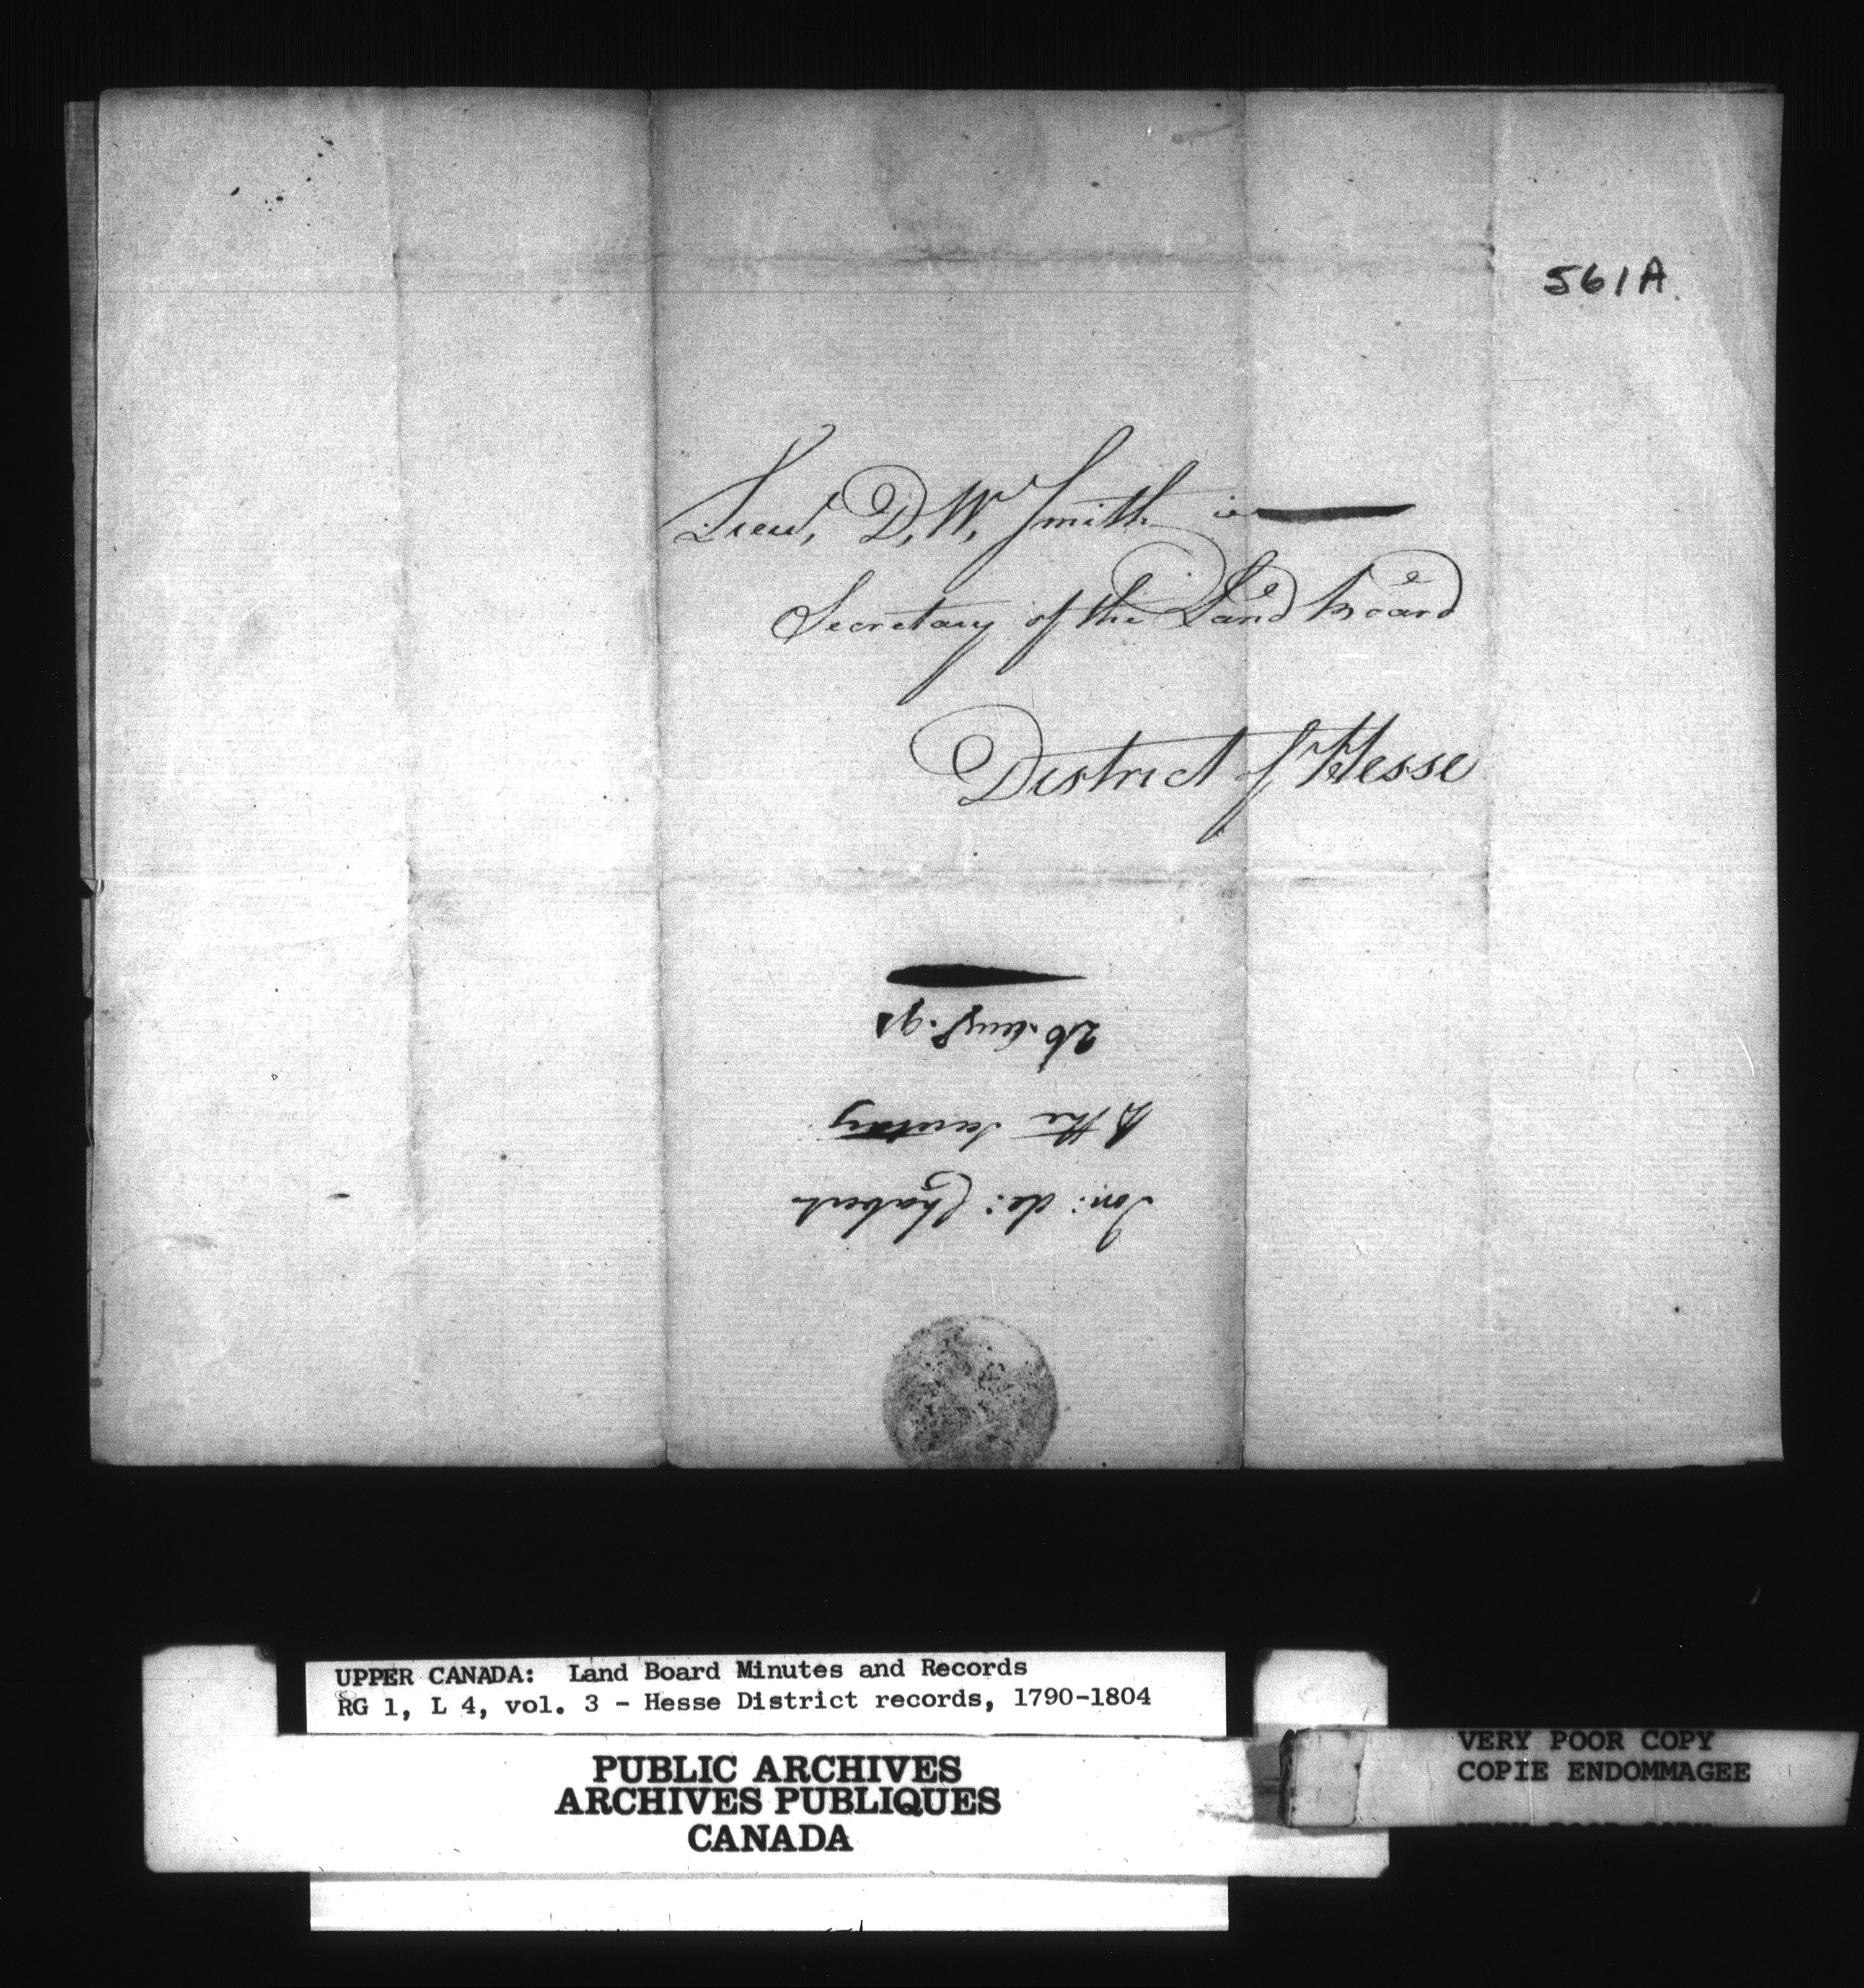 561A
Lieut, D, W, Smith
Secretary of the Land board
District of Hesse
Jon: de: Chabert
to the Secretary
26. Augt. 91
UPPER CANADA: Land Board Minutes and Records
RG 1, L 4, vol. 3 - Hesse District records, 1790-1804
PUBLIC ARCHIVES
ARCHIVES PUBLIQUES
CANADA
VERY POOR COPY
COPIE ENDOMMAGEE